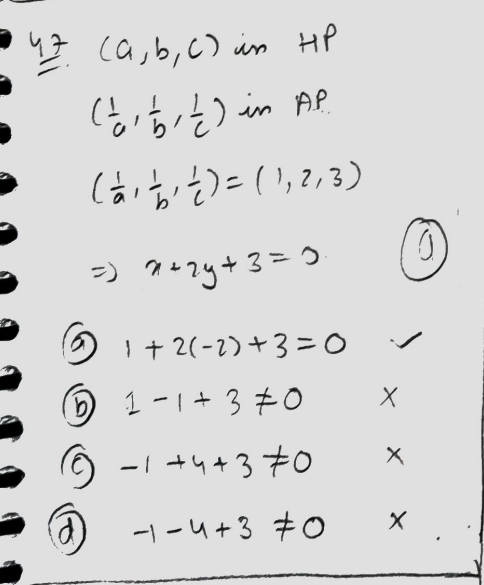 47. (a, b, c) in HP
(1/a, 1/b, 1/c) in AP.
(1/a, 1/b, 1/c) = (1, 2, 3)
=> x + 2y + 3 = 0.
(a) 1 + 2(-2) + 3 = 0 ✓
(b) 1 - 1 + 3 ≠ 0 ×
(c) -1 + 4 + 3 ≠ 0 ×
(d) -1 - 4 + 3 ≠ 0 ×